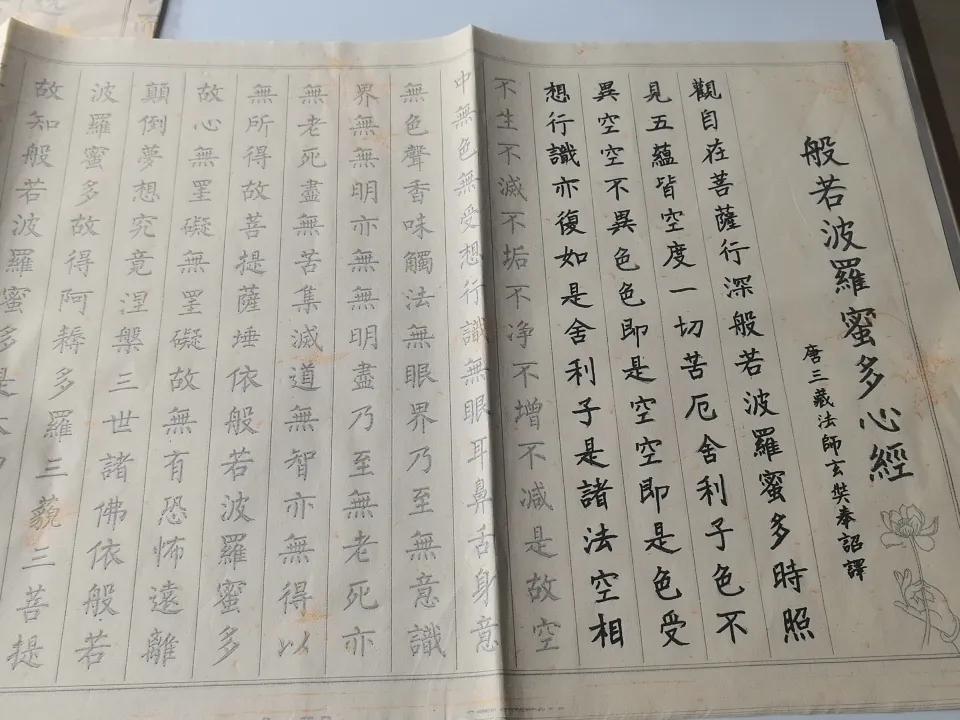 般若波羅蜜多心經
唐三藏法師玄奘奉詔譯
觀自在菩薩行深般若波羅蜜多時照
見五蘊皆空度一切苦厄舍利子色不
異空空不異色色即是空空即是色受
想行識亦復如是舍利子是諸法空相
不生不滅不垢不净不增不減是故空
中無色無受想行識無眼耳鼻舌身意
無色聲香味觸法無眼界乃至無意識
界無無明亦無無明盡乃至無老死亦
無老死盡無苦集滅道無智亦無得以
無所得故菩提薩埵依般若波羅蜜多
故心無罣礙無罣礙故無有恐怖遠離
顛倒夢想究竟涅槃三世諸佛依般若
波羅蜜多故得阿耨多羅三藐三菩提
故知般若波羅蜜多是